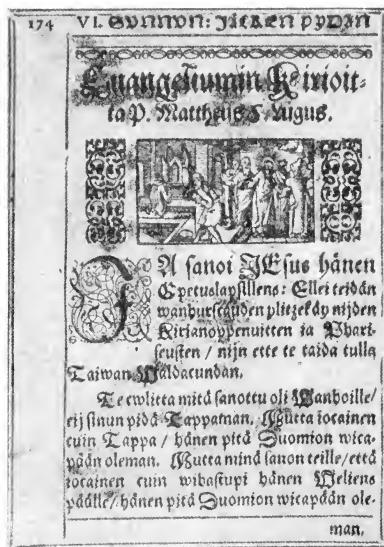 174 VI. SVNNVN: JÄLKEN PYHÄN
Euangeliumin Kirioit-
ta P. Mattheus 5. Lugus.
JA sanoi JEsus hänen
Opetuslapsillens: Ellei teidän
wanhurscauden plitzekäy nijden
Kirianoppenuitten ia Phari-
seusten / nijn ette te taida tulla
Taiwan Waldacundan.
Te cwlitta mitä sanottu oli Wanhoille/
eij sinun pidä Tappaman. Mutta iocainen
cuin Tappa / hänen pitä Duomion wica-
pään oleman. Mutta minä sanon teille/että
iocainen cuin wihastupi hänen Weliens
päälle/ hänen pitä Duomion wicapään ole-
man.